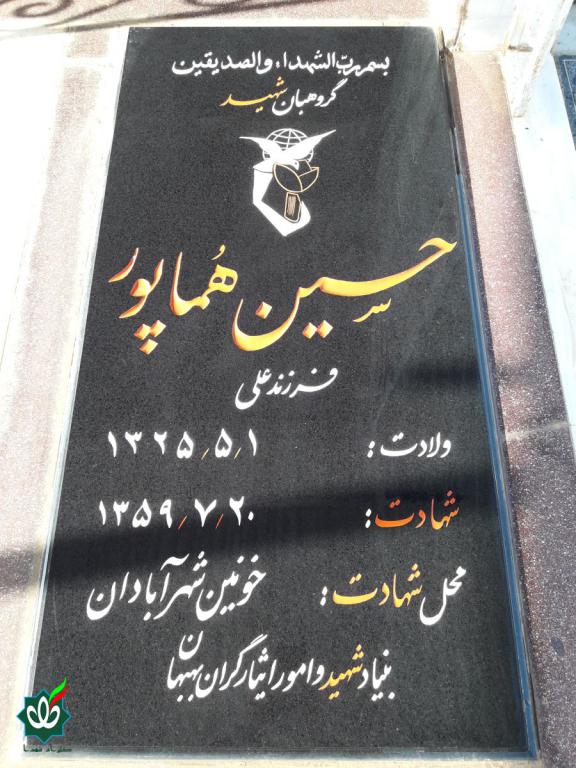 بسم رب الشهداء والصدیقین
گروهبان شهید
حسین هُماپور
فرزند علی
ولادت: ۱۳۲۵٫۵٫۱
شهادت: ۱۳۵۹٫۷٫۲۰
محل شهادت: خونین شهر آبادان
بنیاد شهید و امور ایثارگران بهبهان